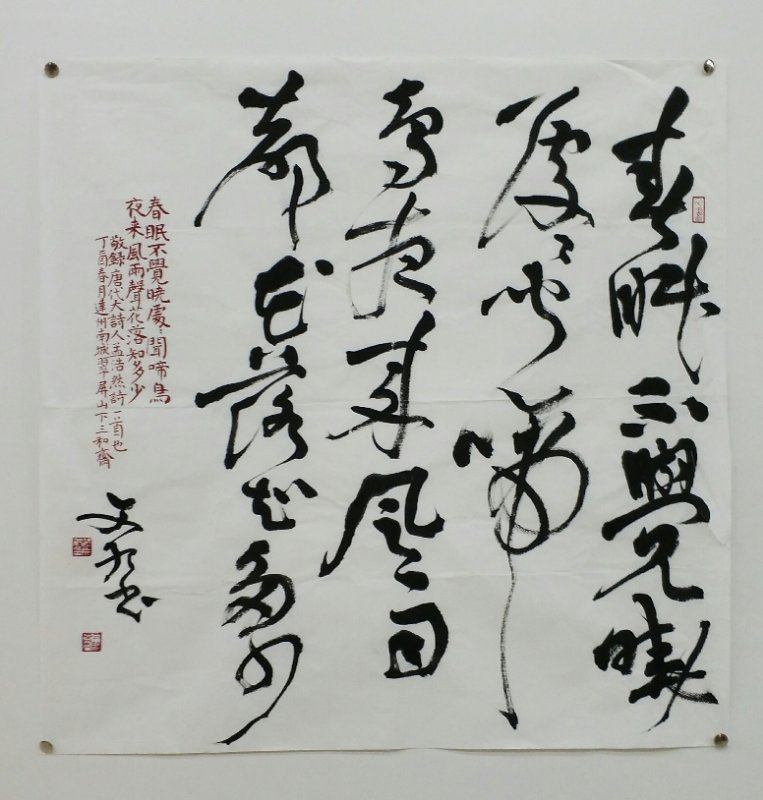 春眠不覺曉
處〻聞啼
鳥夜来風雨
聲花落知多少
春眠不覺曉處〻聞啼鳥
夜来風雨聲花落知多少
敬錄唐代大詩人孟浩然詩一首也
丁酉春月達州南城翠屏山下三和齋
文書